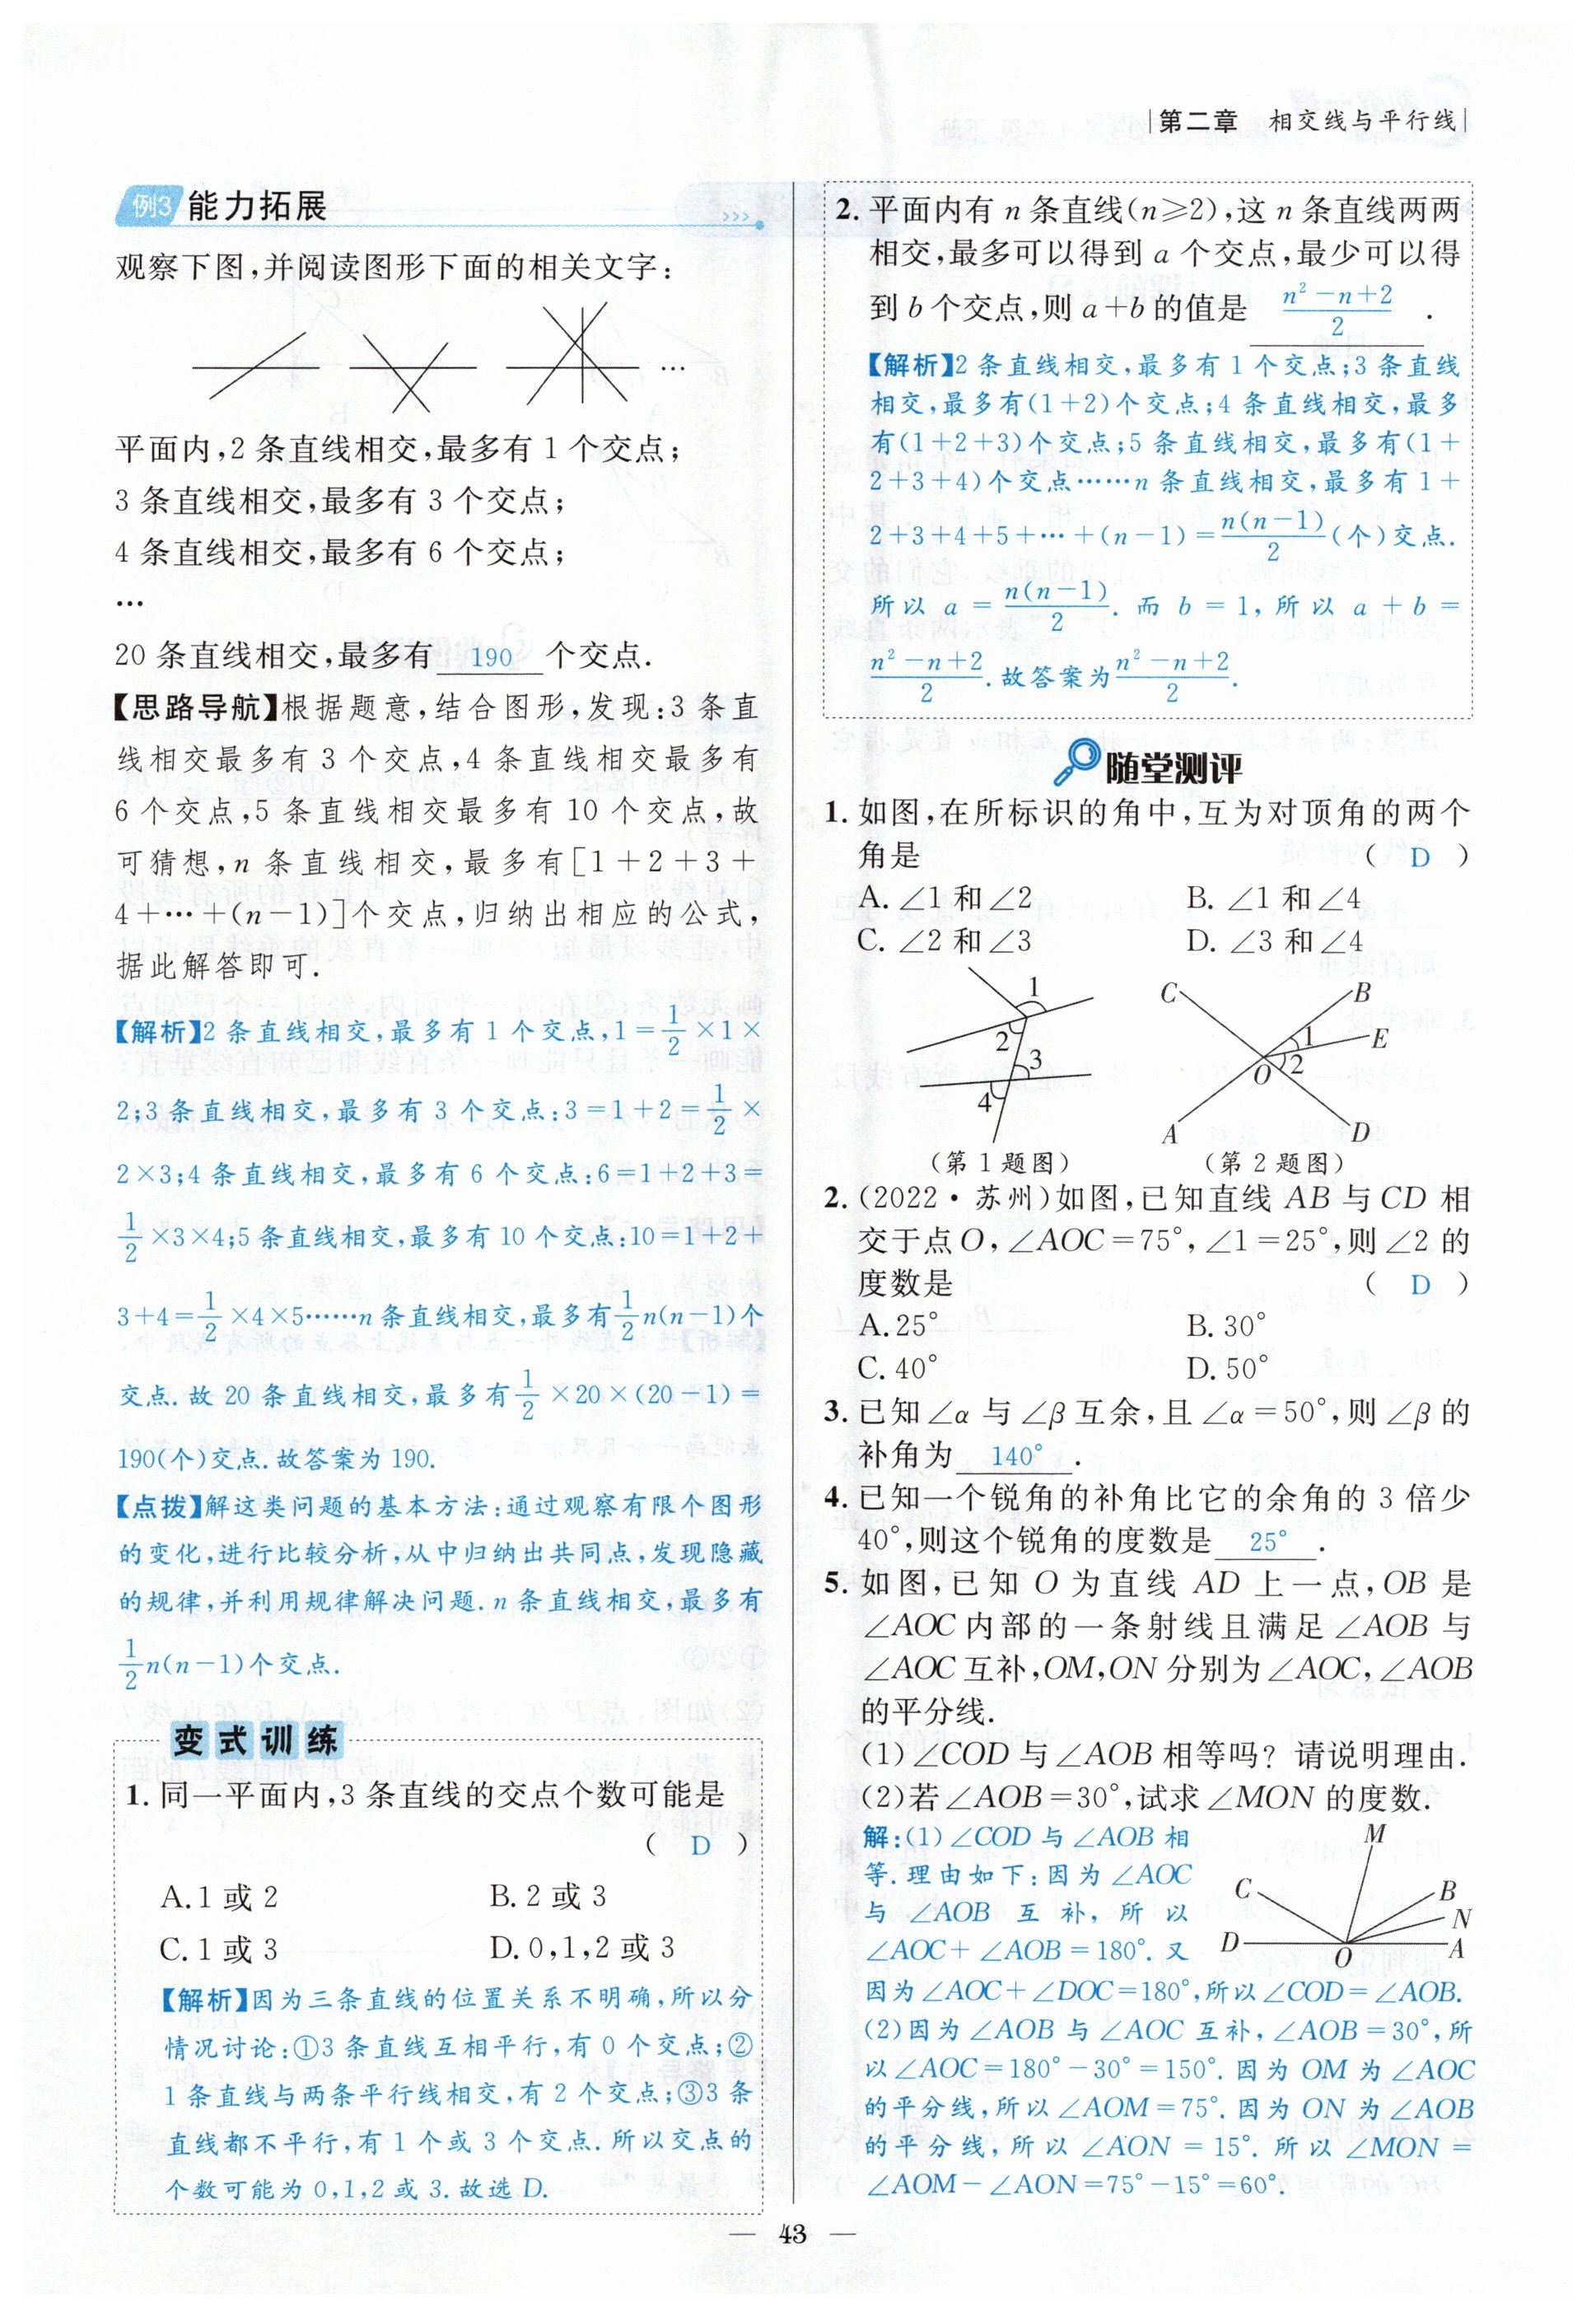 第二章 相交线与平行线
例3 能力拓展
观察下图,并阅读图形下面的相关文字:
…
平面内,2 条直线相交,最多有 1 个交点;
3 条直线相交,最多有 3 个交点;
4 条直线相交,最多有 6 个交点;
…
20 条直线相交,最多有 190 个交点.
【思路导航】根据题意,结合图形,发现:3 条直
线相交最多有 3 个交点,4 条直线相交最多有
6 个交点,5 条直线相交最多有 10 个交点,故
可猜想,n 条直线相交,最多有[1+2+3+
4+…+(n-1)]个交点,归纳出相应的公式,
据此解答即可.
【解析】2 条直线相交,最多有 1 个交点,1=1/2×1×
2;3 条直线相交,最多有 3 个交点:3=1+2=1/2×
2×3;4 条直线相交,最多有 6 个交点:6=1+2+3=
1/2×3×4;5 条直线相交,最多有 10 个交点:10=1+2+
3+4=1/2×4×5……n 条直线相交,最多有1/2n(n-1)个
交点.故 20 条直线相交,最多有1/2×20×(20-1)=
190(个)交点.故答案为 190.
【点拨】解这类问题的基本方法:通过观察有限个图形
的变化,进行比较分析,从中归纳出共同点,发现隐藏
的规律,并利用规律解决问题.n 条直线相交,最多有
1/2n(n-1)个交点.
变式训练
1. 同一平面内,3 条直线的交点个数可能是
( D )
A.1 或 2 B.2 或 3
C.1 或 3 D.0,1,2 或 3
【解析】因为三条直线的位置关系不明确,所以分
情况讨论:①3 条直线互相平行,有 0 个交点;②
1 条直线与两条平行线相交,有 2 个交点;③3 条
直线都不平行,有 1 个或 3 个交点.所以交点的
个数可能为 0,1,2 或 3.故选 D.
2. 平面内有 n 条直线(n≥2),这 n 条直线两两
相交,最多可以得到 a 个交点,最少可以得
到 b 个交点,则 a+b 的值是 (n²-n+2)/2 .
【解析】2 条直线相交,最多有 1 个交点;3 条直线
相交,最多有(1+2)个交点;4 条直线相交,最多
有(1+2+3)个交点;5 条直线相交,最多有(1+
2+3+4)个交点……n 条直线相交,最多有 1+
2+3+4+5+…+(n-1)=n(n-1)/2(个)交点.
所以 a=n(n-1)/2.而 b=1,所以 a+b=
(n²-n+2)/2.故答案为(n²-n+2)/2.
随堂测评
1. 如图,在所标识的角中,互为对顶角的两个
角是 ( D )
A. ∠1 和∠2 B. ∠1 和∠4
C. ∠2 和∠3 D. ∠3 和∠4
1
2
3
4
C B
1 E
O 2
A D
(第 1 题图) (第 2 题图)
2. (2022·苏州)如图,已知直线 AB 与 CD 相
交于点 O,∠AOC=75°,∠1=25°,则∠2 的
度数是 ( D )
A.25° B.30°
C.40° D.50°
3. 已知∠α 与∠β 互余,且∠α=50°,则∠β 的
补角为 140° .
4. 已知一个锐角的补角比它的余角的 3 倍少
40°,则这个锐角的度数是 25° .
5. 如图,已知 O 为直线 AD 上一点,OB 是
∠AOC 内部的一条射线且满足∠AOB 与
∠AOC 互补,OM,ON 分别为∠AOC,∠AOB
的平分线.
(1)∠COD 与∠AOB 相等吗? 请说明理由.
(2)若∠AOB=30°,试求∠MON 的度数.
解:(1)∠COD 与∠AOB 相
等.理由如下:因为∠AOC
与 ∠AOB 互补,所以
∠AOC+∠AOB=180°.又
M
C B
N
D O A
因为∠AOC+∠DOC=180°,所以∠COD=∠AOB.
(2)因为∠AOB 与∠AOC 互补,∠AOB=30°,所
以∠AOC=180°-30°=150°.因为 OM 为∠AOC
的平分线,所以∠AOM=75°.因为 ON 为∠AOB
的平分线,所以∠AON=15°.所以∠MON=
∠AOM-∠AON=75°-15°=60°.
— 43 —